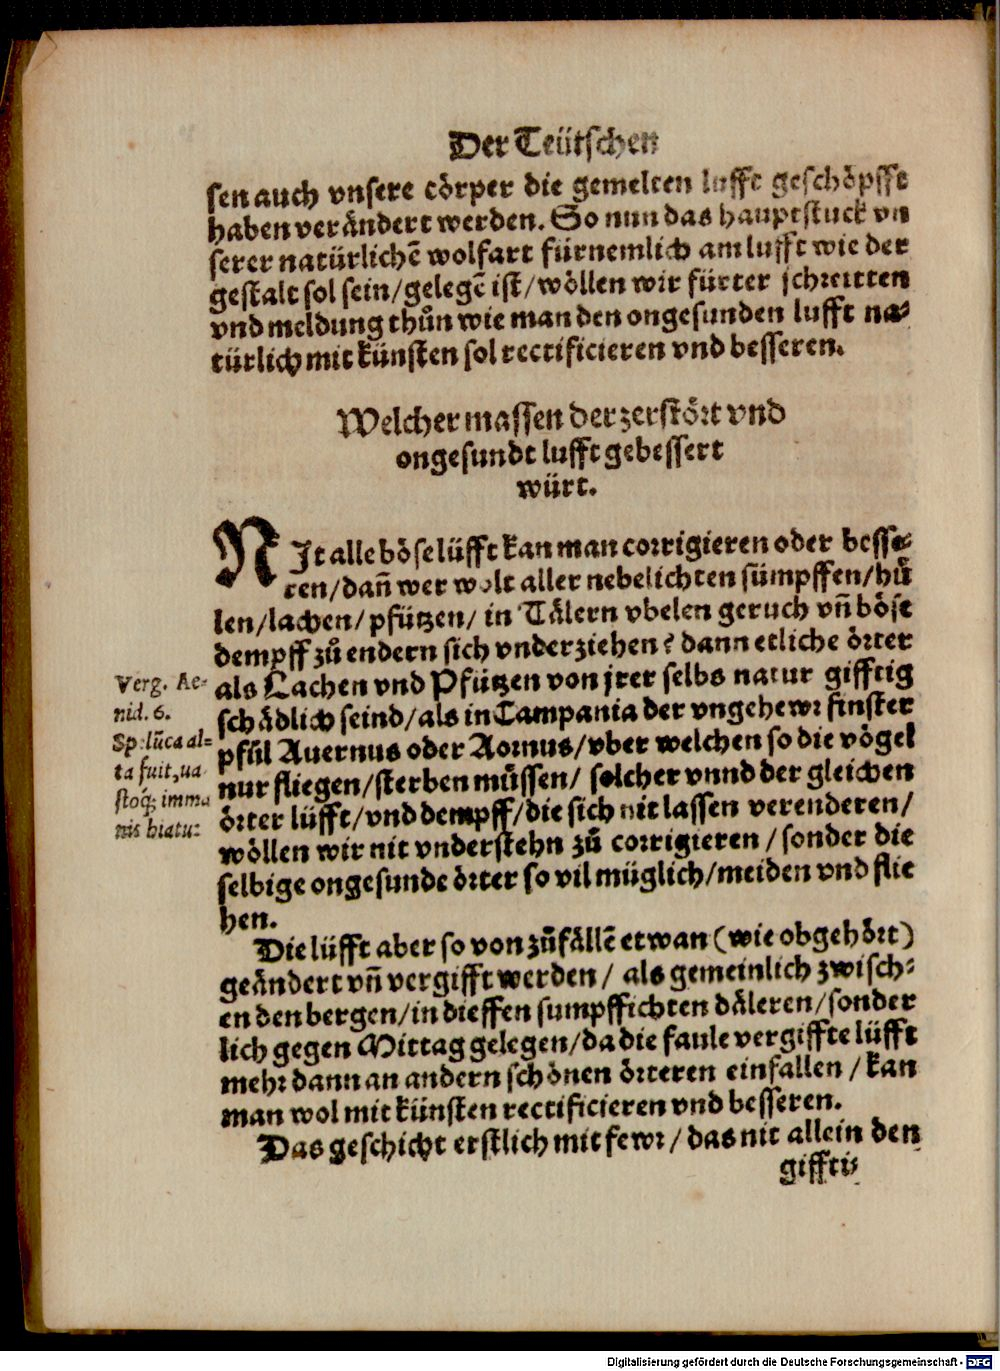 Der Teütschen
sen auch vnsere cörper die gemelten lufft geschöpfft
haben verändert werden. So nun das hauptstuck vn
serer natürlichẽ wolfart fürnemlich am lufft wie der
gestalt sol sein/gelegẽ ist/wöllen wir fürter schreitten
vnd meldung thůn wie man den ongesunden lufft na⸗
türlich mit künsten sol rectificieren vnd besseren.
Welcher massen der zerstört vnd
ongesundt lufft gebessert
würt.
NIt alle böse lüfft kan man corrigieren oder besse⸗
ren/dañ wer wolt aller nebelichten sümpffen/hü
len/lachen/pfützen/ in Tälern vbelen geruch vñ böse
dempff zů endern sich vnderziehen? dann etliche örter
als Lachen vnd Pfützen von jrer selbs natur gifftig
schädlich seind/als in Campania der vngehewr finster
pfůl Auernus oder Aornus/vber welchen so die vögel
nur fliegen/sterben müssen/ solcher vnnd der gleichen
örter lüfft/vnd dempff/die sich nit lassen verenderen/
wöllen wir nit vnderstehn zů corrigieren/sonder die
selbige ongesunde örter so vil müglich/meiden vnd flie
hen.
Verg. Ae⸗
nid. 6.
Spelũca al⸗
ta fuit, ua
stoq́; imma
nis hiatu:
Die lüfft aber so von zůfällẽ etwan (wie obgehört)
geändert vñ vergifft werden/ als gemeinlich zwisch⸗
en den bergen/in dieffen sumpffichten däleren/sonder
lich gegen Mittag gelegen/da die faule vergiffte lüfft
mehr dann an andern schönen örteren einfallen/kan
man wol mit künsten rectificieren vnd besseren.
Das geschicht erstlich mit fewr/das nit allein den
giffti⸗
Digitalisierung gefördert durch die Deutsche Forschungsgemeinschaft - DFG